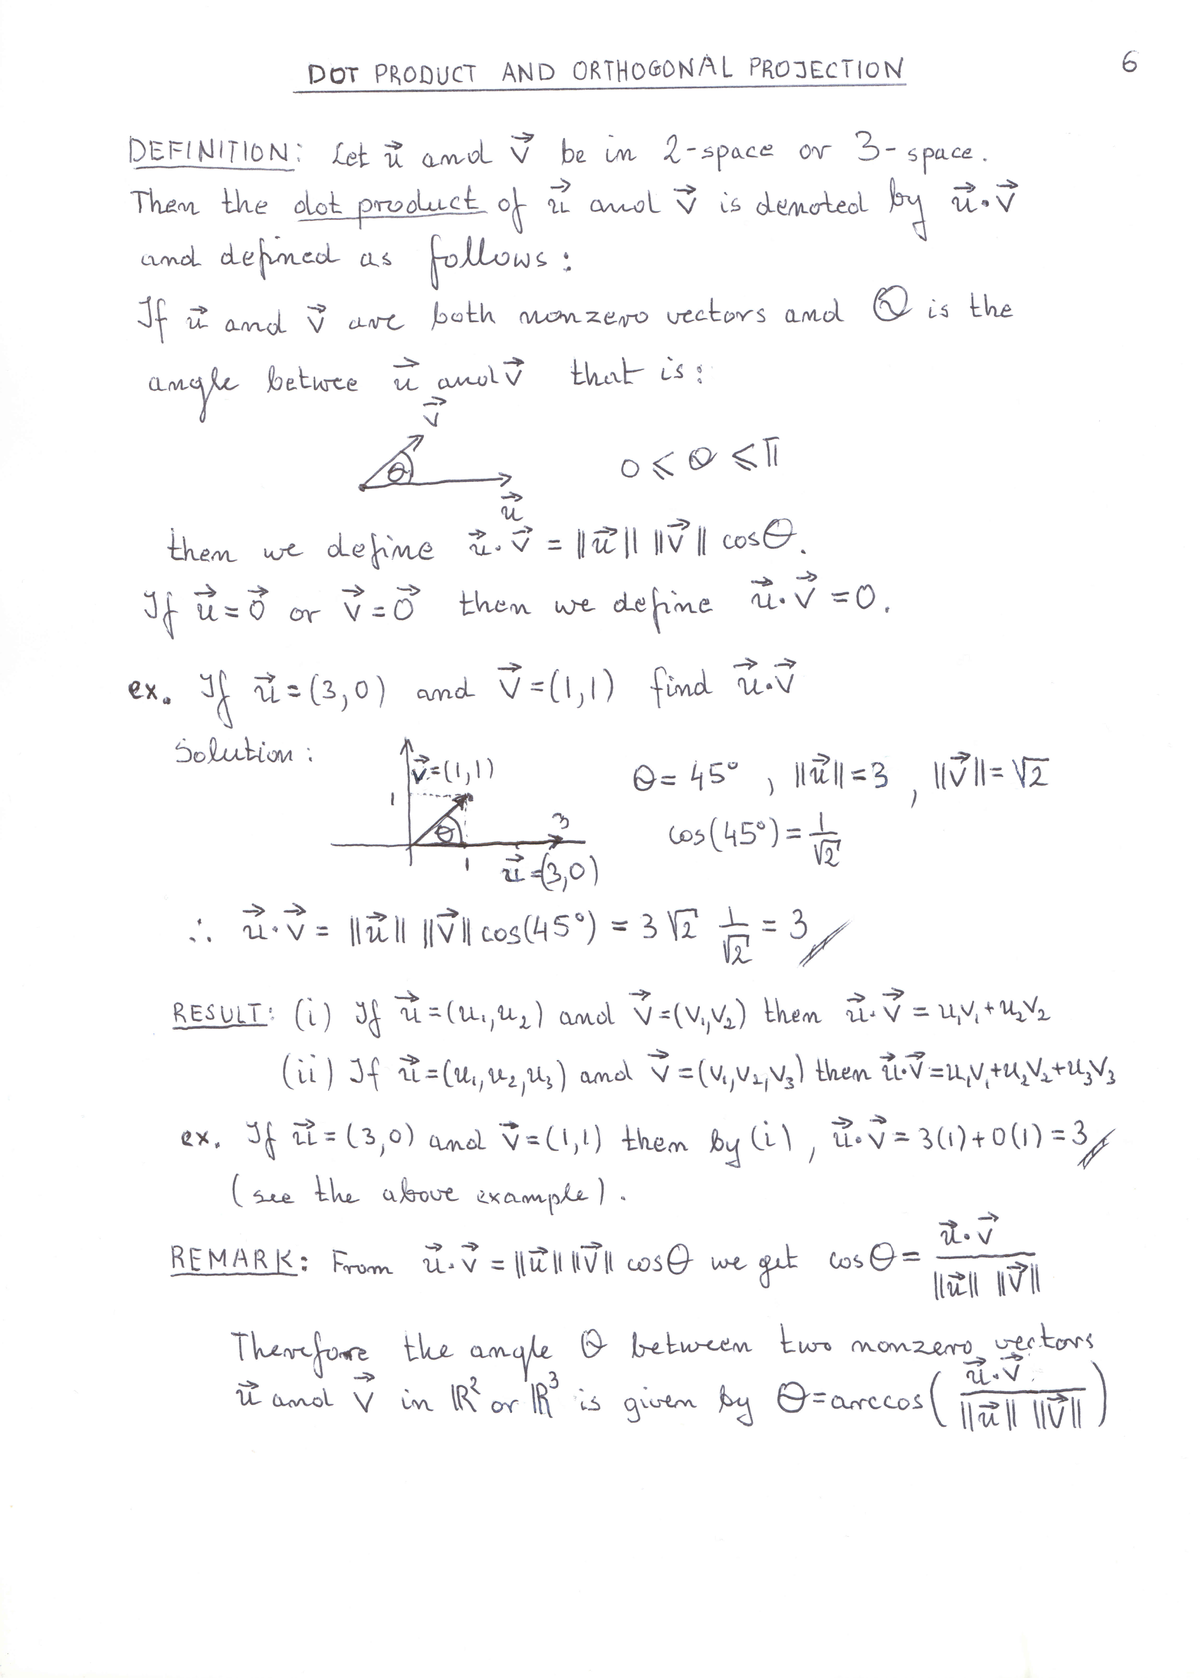 DOT PRODUCT AND ORTHOGONAL PROJECTION
6
DEFINITION: Let u⃗ and v⃗ be in 2-space or 3-space.
Then the dot product of u⃗ and v⃗ is denoted by u⃗·v⃗
and defined as follows:
If u⃗ and v⃗ are both nonzero vectors and θ is the
angle betwee u⃗ and v⃗ that is:
v⃗
θ
u⃗
0 ⩽ θ ⩽ π
then we define u⃗·v⃗ = ‖u⃗‖ ‖v⃗‖ cosθ.
If u⃗ = 0⃗ or v⃗ = 0⃗ then we define u⃗·v⃗ = 0.
ex. If u⃗ = (3,0) and v⃗ = (1,1) find u⃗·v⃗
Solution:
v⃗=(1,1)
1
θ
3
1
u⃗=(3,0)
θ = 45° , ‖u⃗‖ = 3 , ‖v⃗‖ = √2
cos(45°) = 1/√2
∴ u⃗·v⃗ = ‖u⃗‖ ‖v⃗‖ cos(45°) = 3 √2 1/√2 = 3
RESULT: (i) If u⃗ = (u₁,u₂) and v⃗ = (v₁,v₂) then u⃗·v⃗ = u₁v₁+u₂v₂
(ii) If u⃗ = (u₁,u₂,u₃) and v⃗ = (v₁,v₂,v₃) then u⃗·v⃗ = u₁v₁+u₂v₂+u₃v₃
ex. If u⃗ = (3,0) and v⃗ = (1,1) then by (i), u⃗·v⃗ = 3(1)+0(1) = 3
(see the above example).
REMARK: From u⃗·v⃗ = ‖u⃗‖ ‖v⃗‖ cosθ we get cosθ = u⃗·v⃗ / ‖u⃗‖ ‖v⃗‖
Therefore the angle θ between two nonzero vectors
u⃗ and v⃗ in ℝ² or ℝ³ is given by θ = arccos( u⃗·v⃗ / ‖u⃗‖ ‖v⃗‖ )